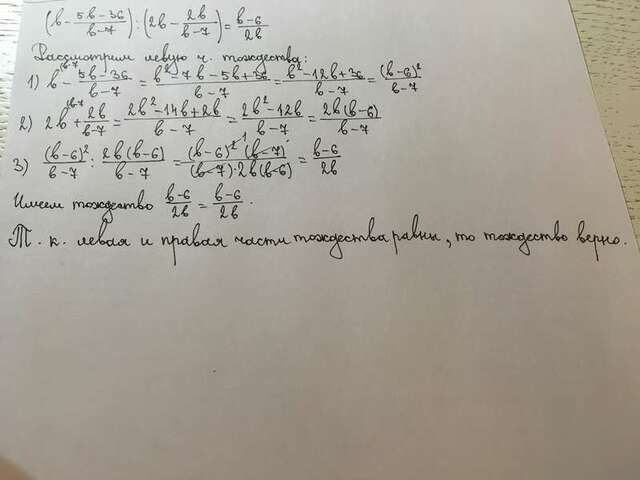 (b - (5b-36)/(b-7)) : (2b - 2b/(b-7)) = (b-6)/2b
Рассмотрим левую ч. тождества:
1) b^(b-7) - (5b-36)/(b-7) = (b²-7b-5b+36)/(b-7) = (b²-12b+36)/(b-7) = (b-6)²/(b-7)
2) 2b^(b-7) + 2b/(b-7) = (2b²-14b+2b)/(b-7) = (2b²-12b)/(b-7) = 2b(b-6)/(b-7)
3) (b-6)²/(b-7) : 2b(b-6)/(b-7) = (b-6)²^1 (b-7)/(b-7)·2b(b-6) = (b-6)/2b
Имеем тождество (b-6)/2b = (b-6)/2b.
Т. к. левая и правая части тождества равны, то тождество верно.